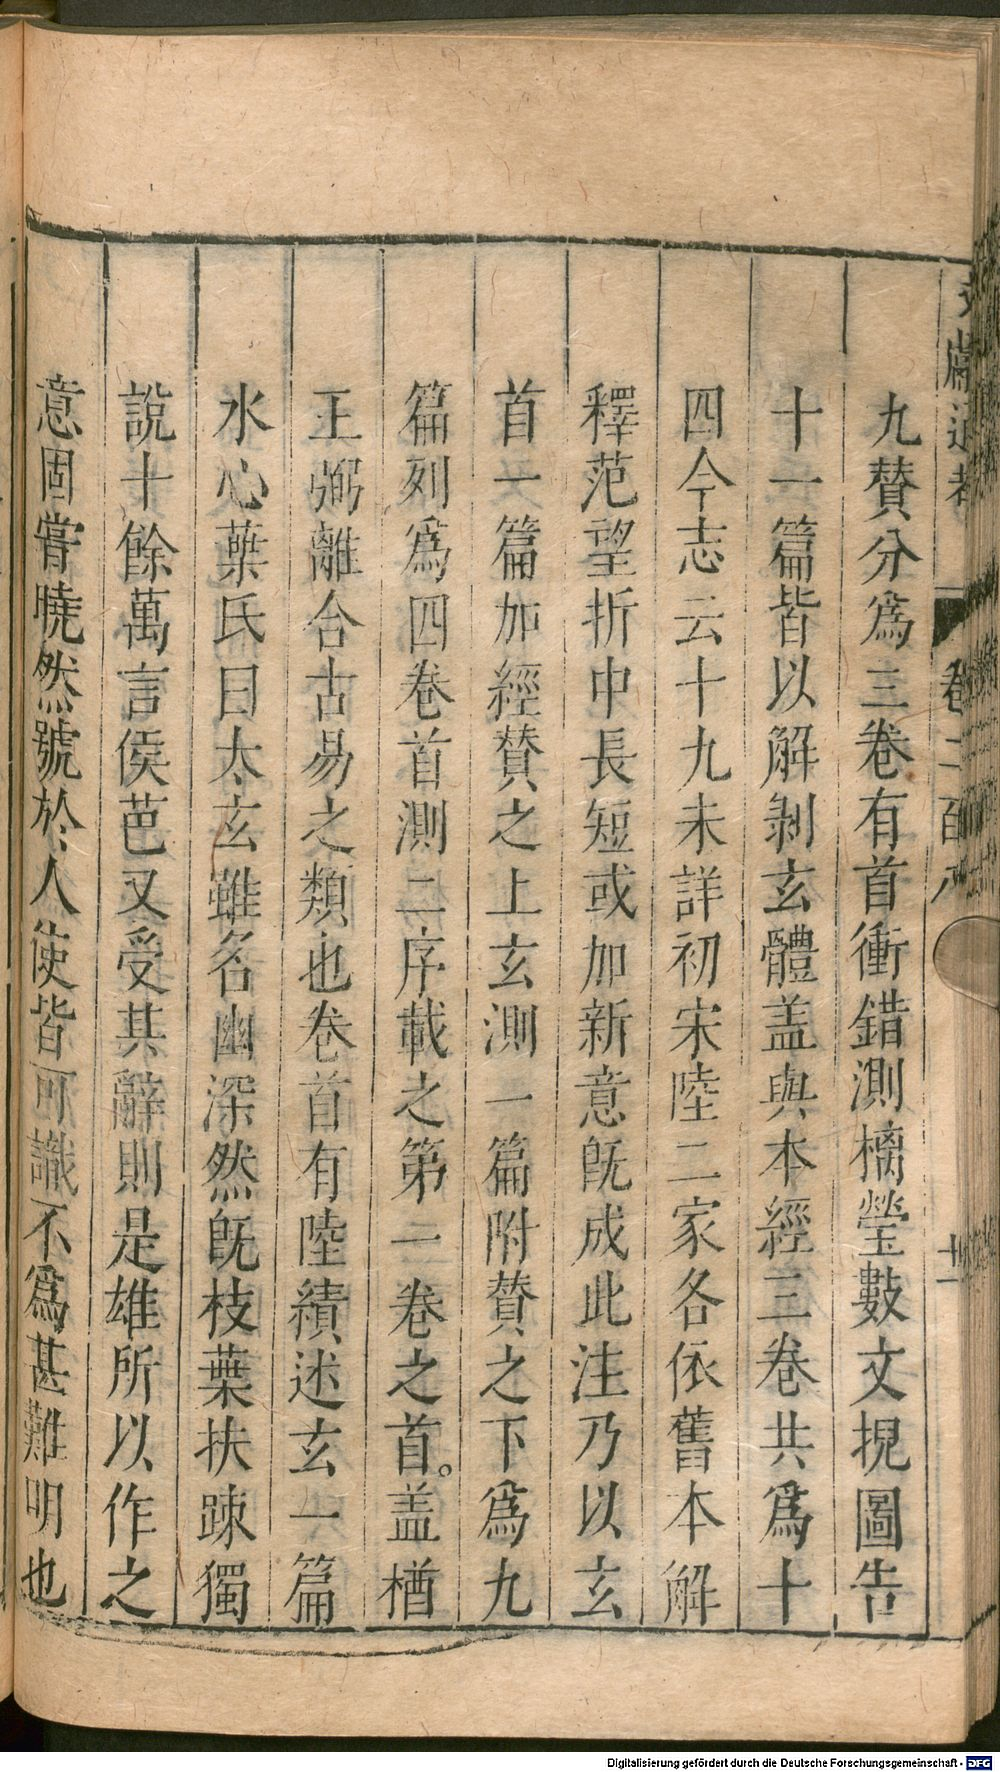 文獻通考 卷二百八 十一
九贊分爲三卷有首衝錯測摛瑩數文掜圖告
十一篇皆以解剥玄體盖與本經三卷共爲十
四今志云十九未詳初宋陸二家各依舊本解
釋范望折中長短或加新意旣成此注乃以玄
首一篇加經贊之上玄測一篇附贊之下爲九
篇列爲四卷首測二序載之第一卷之首。盖楢
王弼離合古易之類也卷首有陸績述玄一篇
水心葉氏曰太玄雖名幽深然旣枝葉扶踈獨
說十餘萬言侯芭又受其辭則是雄所以作之
意固嘗曉然號於人使皆可識不爲甚難明也
Digitalisierung gefördert durch die Deutsche Forschungsgemeinschaft - DFG